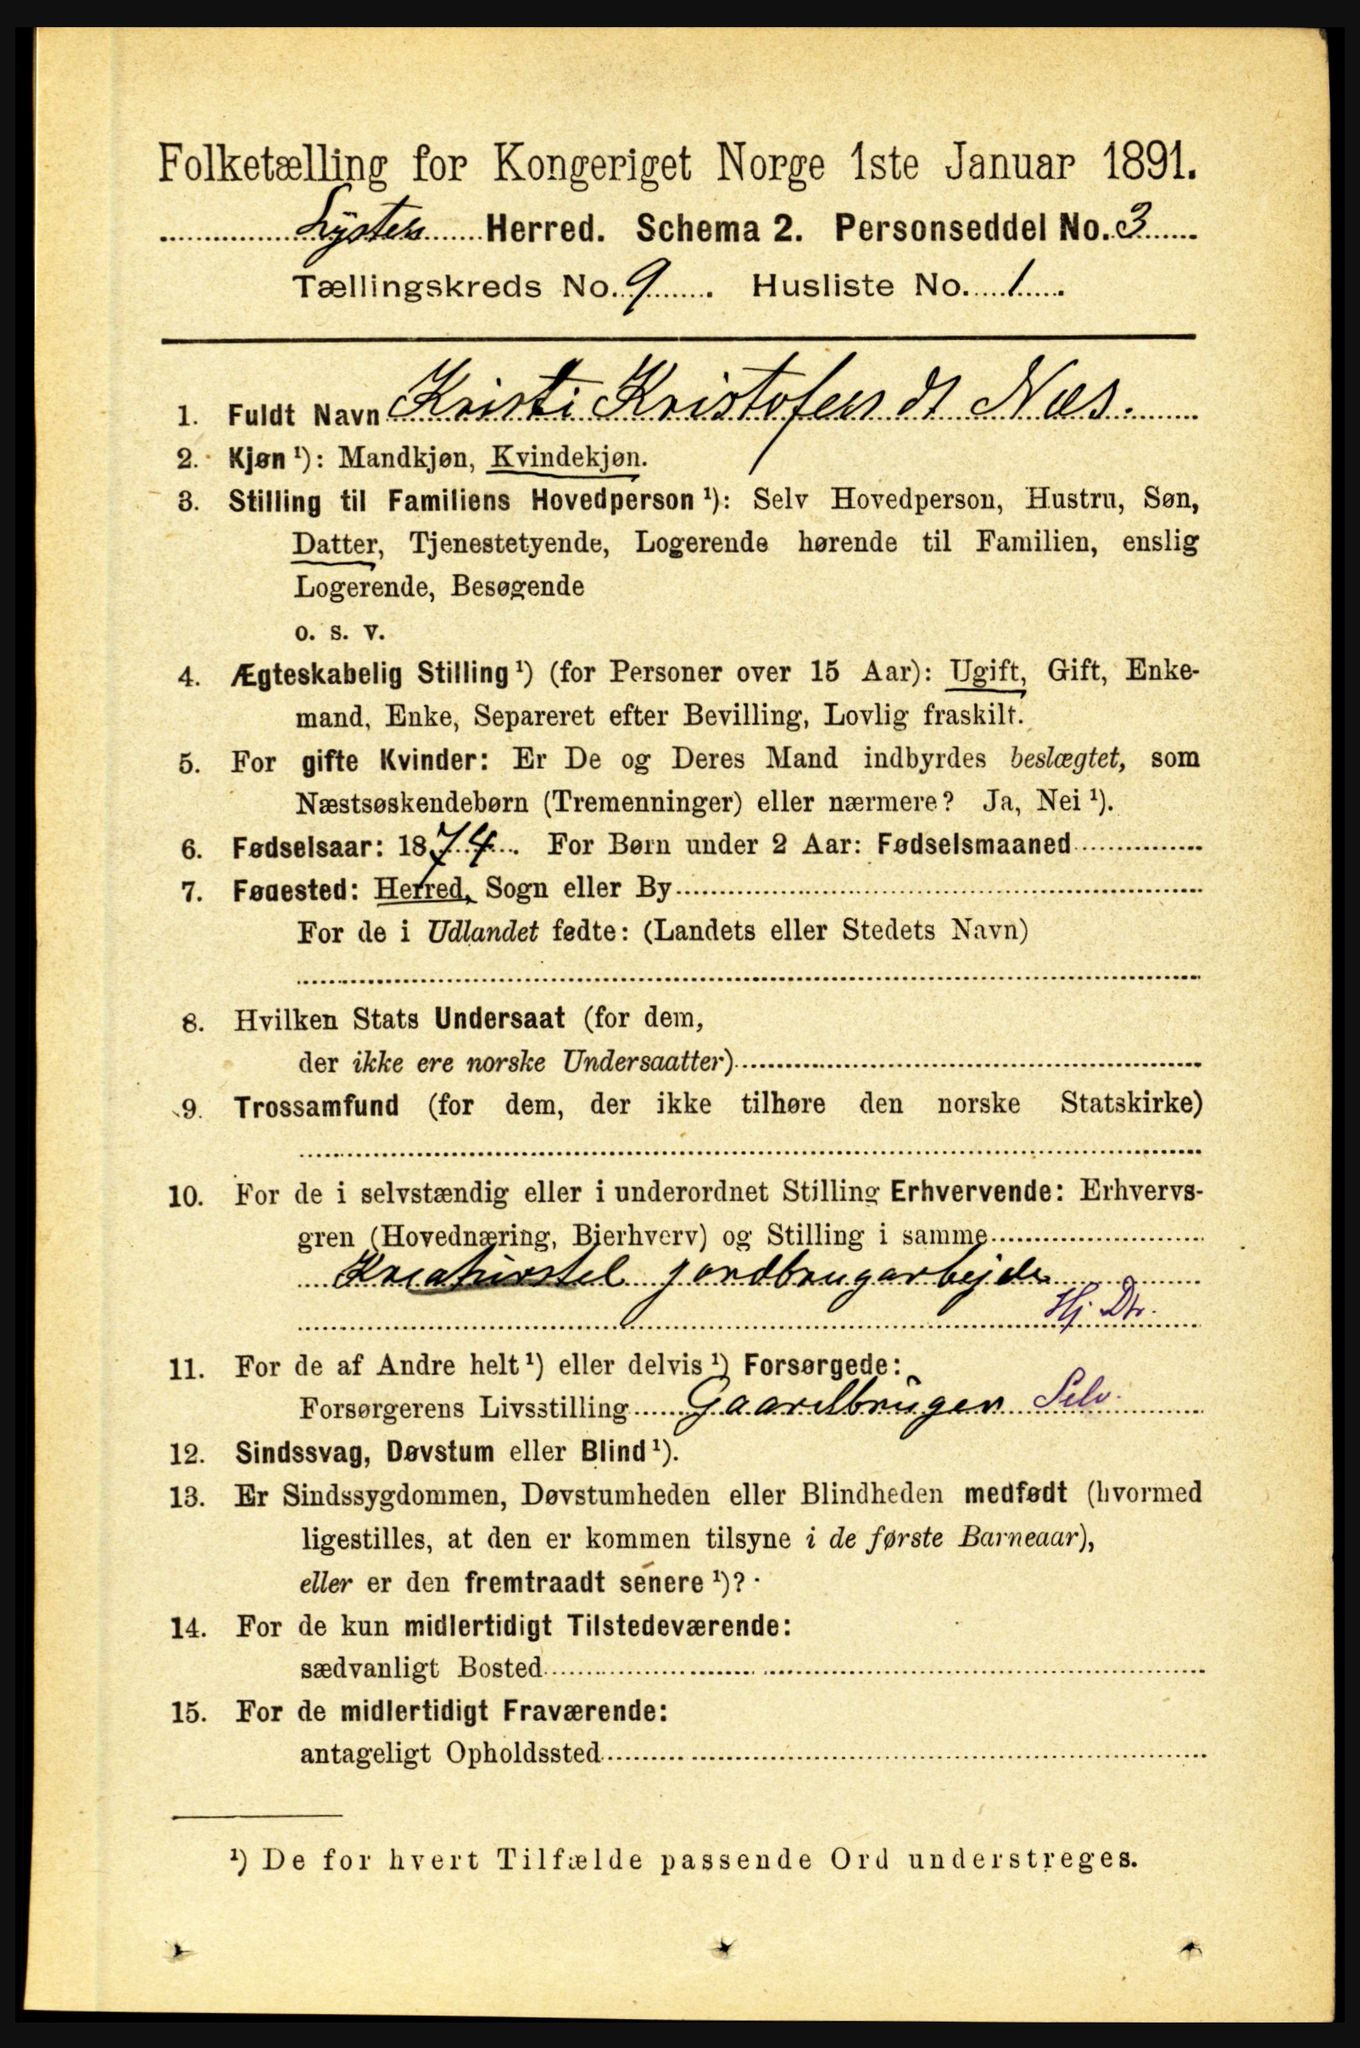 Folketælling for Kongeriget Norge 1ste Januar 1891.
Lyster Herred. Schema 2. Personseddel No. 3
Tællingskreds No. 9. Husliste No. 1.
1. Fuldt Navn Kristi Kristofersdt Næs.
2. Kjøn ¹): Mandkjøn, Kvindekjøn.
3. Stilling til Familiens Hovedperson ¹): Selv Hovedperson, Hustru, Søn,
Datter, Tjenestetyende, Logerende hørende til Familien, enslig
Logerende, Besøgende
o. s. v.
4. Ægteskabelig Stilling ¹) (for Personer over 15 Aar): Ugift, Gift, Enke-
mand, Enke, Separeret efter Bevilling, Lovlig fraskilt.
5. For gifte Kvinder: Er De og Deres Mand indbyrdes beslægtet, som
Næstsøskendebørn (Tremenninger) eller nærmere? Ja, Nei ¹).
6. Fødselsaar: 1874. For Børn under 2 Aar: Fødselsmaaned
7. Fødested: Herred, Sogn eller By
For de i Udlandet fødte: (Landets eller Stedets Navn)
8. Hvilken Stats Undersaat (for dem,
der ikke ere norske Undersaatter)
9. Trossamfund (for dem, der ikke tilhøre den norske Statskirke)
10. For de i selvstændig eller i underordnet Stilling Erhvervende: Erhvervs-
gren (Hovednæring, Bierhverv) og Stilling i samme
Kreaturstel jordbrugarbejde
Hj. Dtr.
11. For de af Andre helt ¹) eller delvis ¹) Forsørgede:
Forsørgerens Livsstilling Gaardbruger Selv.
12. Sindssvag, Døvstum eller Blind ¹).
13. Er Sindssygdommen, Døvstumheden eller Blindheden medfødt (hvormed
ligestilles, at den er kommen tilsyne i de første Barneaar),
eller er den fremtraadt senere ¹)?
14. For de kun midlertidigt Tilstedeværende:
sædvanligt Bosted
15. For de midlertidigt Fraværende:
antageligt Opholdssted
¹) De for hvert Tilfælde passende Ord understreges.